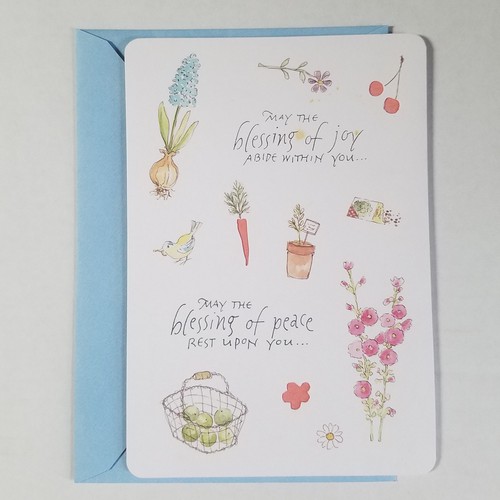 MAY THE
blessing of joy
ABIDE WITHIN YOU...
MAY THE
blessing of peace
REST UPON YOU...